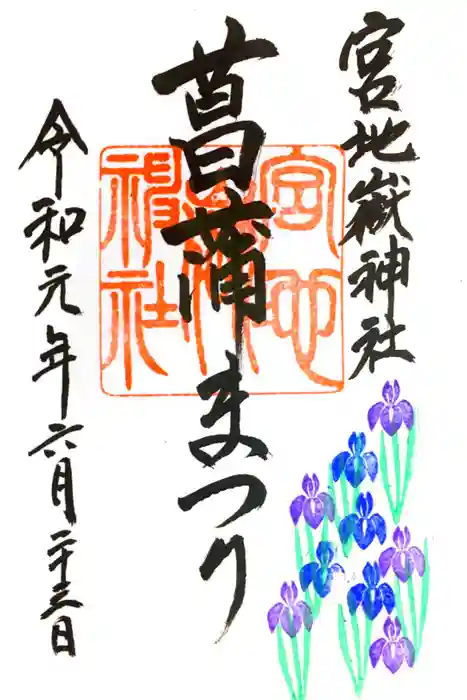 宮地嶽神社
菖蒲まつり
宮地嶽神社
令和元年六月二十三日